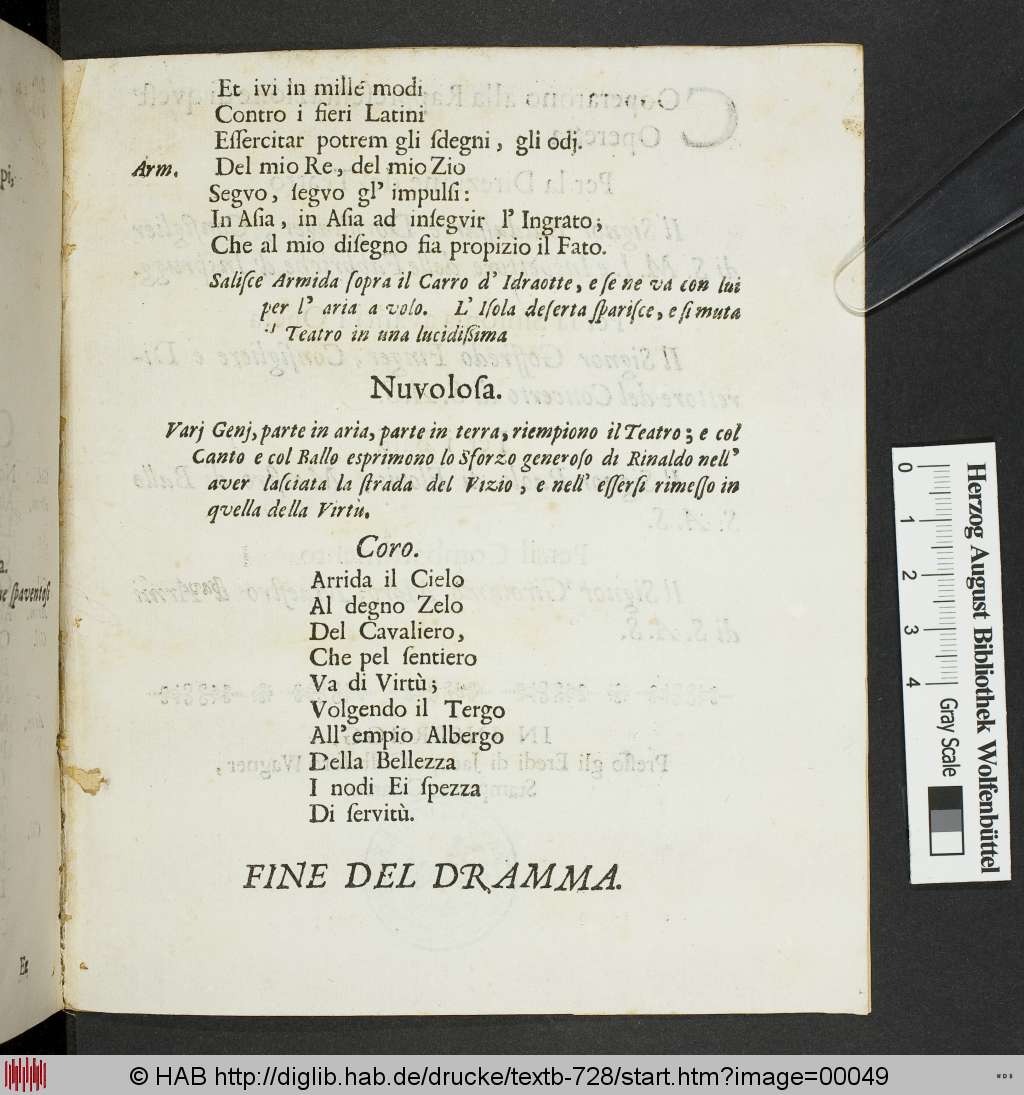 Et ivi in mille modi
Contro i fieri Latini
Eſſercitar potrem gli ſdegni, gli odj.
Arm. Del mio Re, del mio Zio
Segvo, ſegvo gl' impulſi:
In Aſia, in Aſia ad inſegvir l' Ingrato;
Che al mio diſegno ſia propizio il Fato.
Saliſce Armida ſopra il Carro d' Idraotte, e ſe ne va con lui
per l' aria a volo. L' Iſola deſerta ſpariſce, e ſi muta
il Teatro in una lucidiſſima
Nuvoloſa.
Varj Genj, parte in aria, parte in terra, riempiono il Teatro; e col
Canto e col Ballo esprimono lo Sforzo generoſo di Rinaldo nell'
aver laſciata la ſtrada del Vizio, e nell' eſſerſi rimeſſo in
qvella della Virtù.
Coro.
Arrida il Cielo
Al degno Zelo
Del Cavaliero,
Che pel ſentiero
Va di Virtù;
Volgendo il Tergo
All' empio Albergo
Della Bellezza
I nodi Ei ſpezza
Di ſervitù.
FINE DEL DRAMMA.
pi,
a.
ne ſpaventoſi
Et
0 1 2 3 4
Herzog August Bibliothek Wolfenbüttel
Gray Scale
© HAB http://diglib.hab.de/drucke/textb-728/start.htm?image=00049
WDB